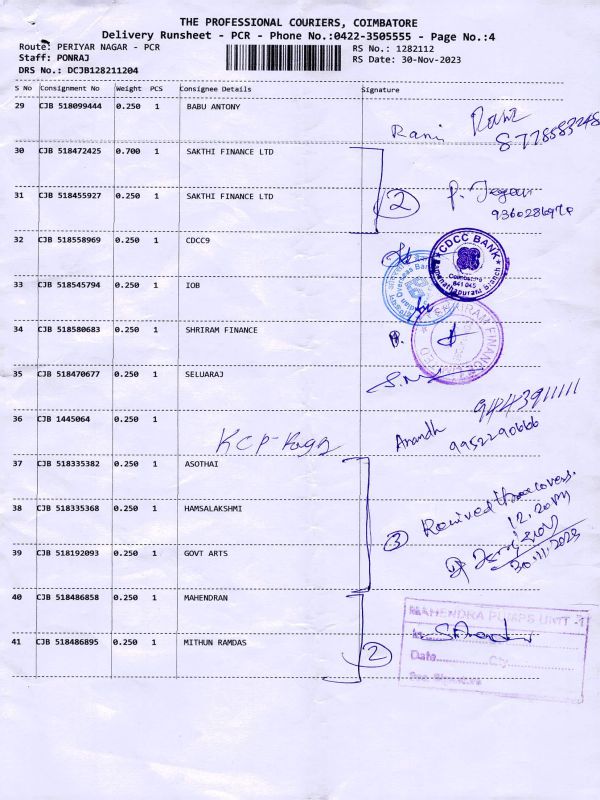 THE PROFESSIONAL COURIERS, COIMBATORE
Delivery Runsheet - PCR - Phone No.:0422-3505555 - Page No.:4
Route: PERIYAR NAGAR - PCR
RS No.: 1282112
Staff: PONRAJ
RS Date: 30-Nov-2023
DRS No.: DCJB128211204
S No Consignment No Weight PCS Consignee Details Signature
29 CJB 518099444 0.250 1 BABU ANTONY
Rani
30 CJB 518472425 0.700 1 SAKTHI FINANCE LTD
2
31 CJB 518455927 0.250 1 SAKTHI FINANCE LTD
32 CJB 518558969 0.250 1 CDCC9
CDCC BANK
Coimbatore
641 045
Ramanathapuram Branch
33 CJB 518545794 0.250 1 IOB
Indian Overseas Bank
34 CJB 518580683 0.250 1 SHRIRAM FINANCE
SHRIRAM FINANCE
35 CJB 518470677 0.250 1 SELUARAJ
9443911111
36 CJB 1445064 0.250 1
Anandh
9952290666
37 CJB 518335382 0.250 1 ASOTHAI
Received three covers.
12.20 PM
38 CJB 518335368 0.250 1 HAMSALAKSHMI
3
30.11.2023
39 CJB 518192093 0.250 1 GOVT ARTS
40 CJB 518486858 0.250 1 MAHENDRAN
MAHENDRA PUMPS UNIT - 1
41 CJB 518486895 0.250 1 MITHUN RAMDAS
2
Date